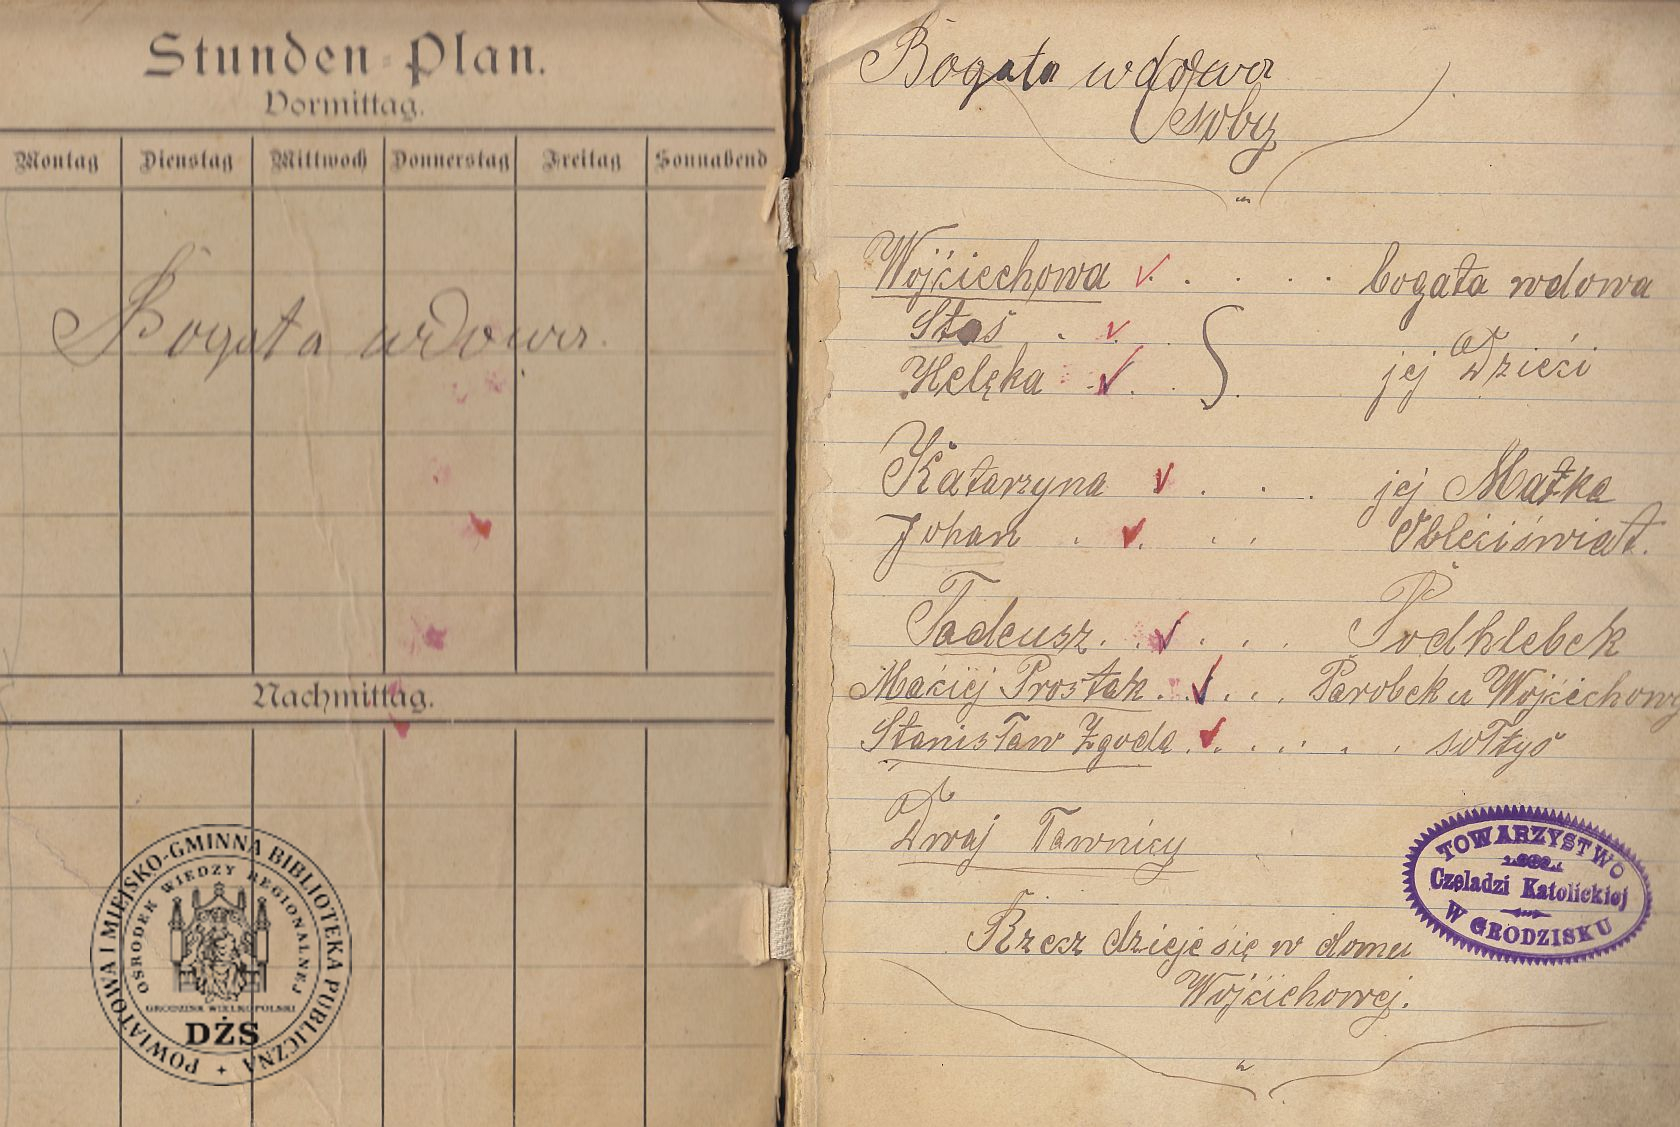 Stunden-Plan.
Vormittag.
Montag Dienstag Mittwoch Donnerstag Freitag Sonnabend
Bogata wdowa.
Nachmittag.
POWIATOWA I MIEJSKO-GMINNA BIBLIOTEKA PUBLICZNA
OŚRODEK WIEDZY REGIONALNEJ
GRODZISK WIELKOPOLSKI
DŻS
Bogata wdowa
Osoby
Wojćiechowa . . . . bogata wdowa
Staś . .
Helęka . . . jej Dzieći
Katarzyna . . . jej Matka
Johan . . . . Obleciświat.
Tadeusz . . . . Podhlebek
Maćiej Prostak . . . . Parobek u Wojćiechowy
Stanisław Zgoda . . . . . . sołtys
Dwaj Ławnicy
Rzecz dzieje się w domu
Wojćichowej.
TOWARZYSTWO
Czeladzi Katolickiej
W GRODZISKU